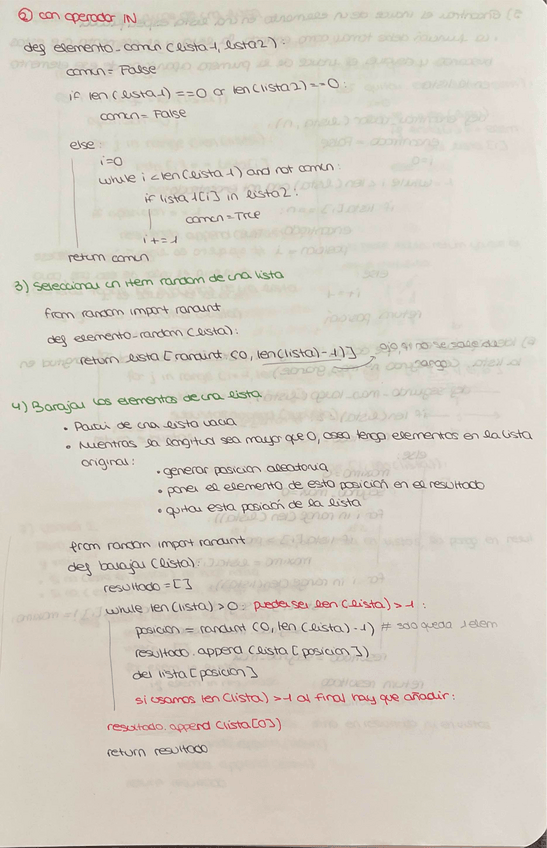 ② con operador IN
def elemento_comun (lista1, lista2):
comun = False
if len(lista1) == 0 or len(lista2) == 0:
comun = False
else:
i=0
while i < len(lista1) and not comun:
if lista1[i] in lista2:
comun = True
i += 1
return comun
3) Seleccionar un ítem random de una lista
from random import randint
def elemento_random (lista):
return lista [randint (0, len(lista) -1)] ojo, si no se sale del
rango
4) Barajar los elementos de una lista
• Partir de una lista vacía
• Mientras la longitud sea mayor que 0, osea tenga elementos en la lista
original:
• generar posición aleatoria
• poner el elemento de esta posición en el resultado
• quitar esta posición de la lista
from random import randint
def barajar (lista):
resultado = []
while len(lista) > 0 puede ser len(lista) > 1:
posicion = randint (0, len(lista) -1) # solo queda 1 elem
resultado.append (lista [posicion])
del lista [posicion]
si usamos len(lista) > 1 al final hay que añadir:
resultado.append (lista[0])
return resultado